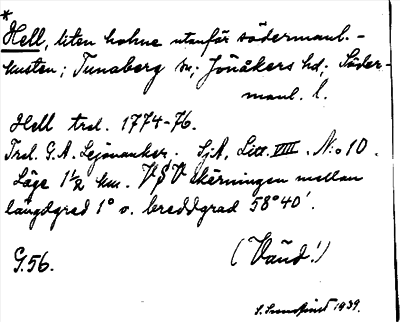 *
Hell, liten holme utanför södermanl.-
kusten; Tunaberg sn; Jönåkers hd; Söder-
manl. l.
Hell trol. 1774-76.
Trol. G.A. Lejonanker. SjA, Litt. VIII. N:o 10.
Läge 1 1/2 km. VSV skärningen mellan
längdgrad 1° o. breddgrad 58°40'.
G.56.
(Vänd!)
1939.